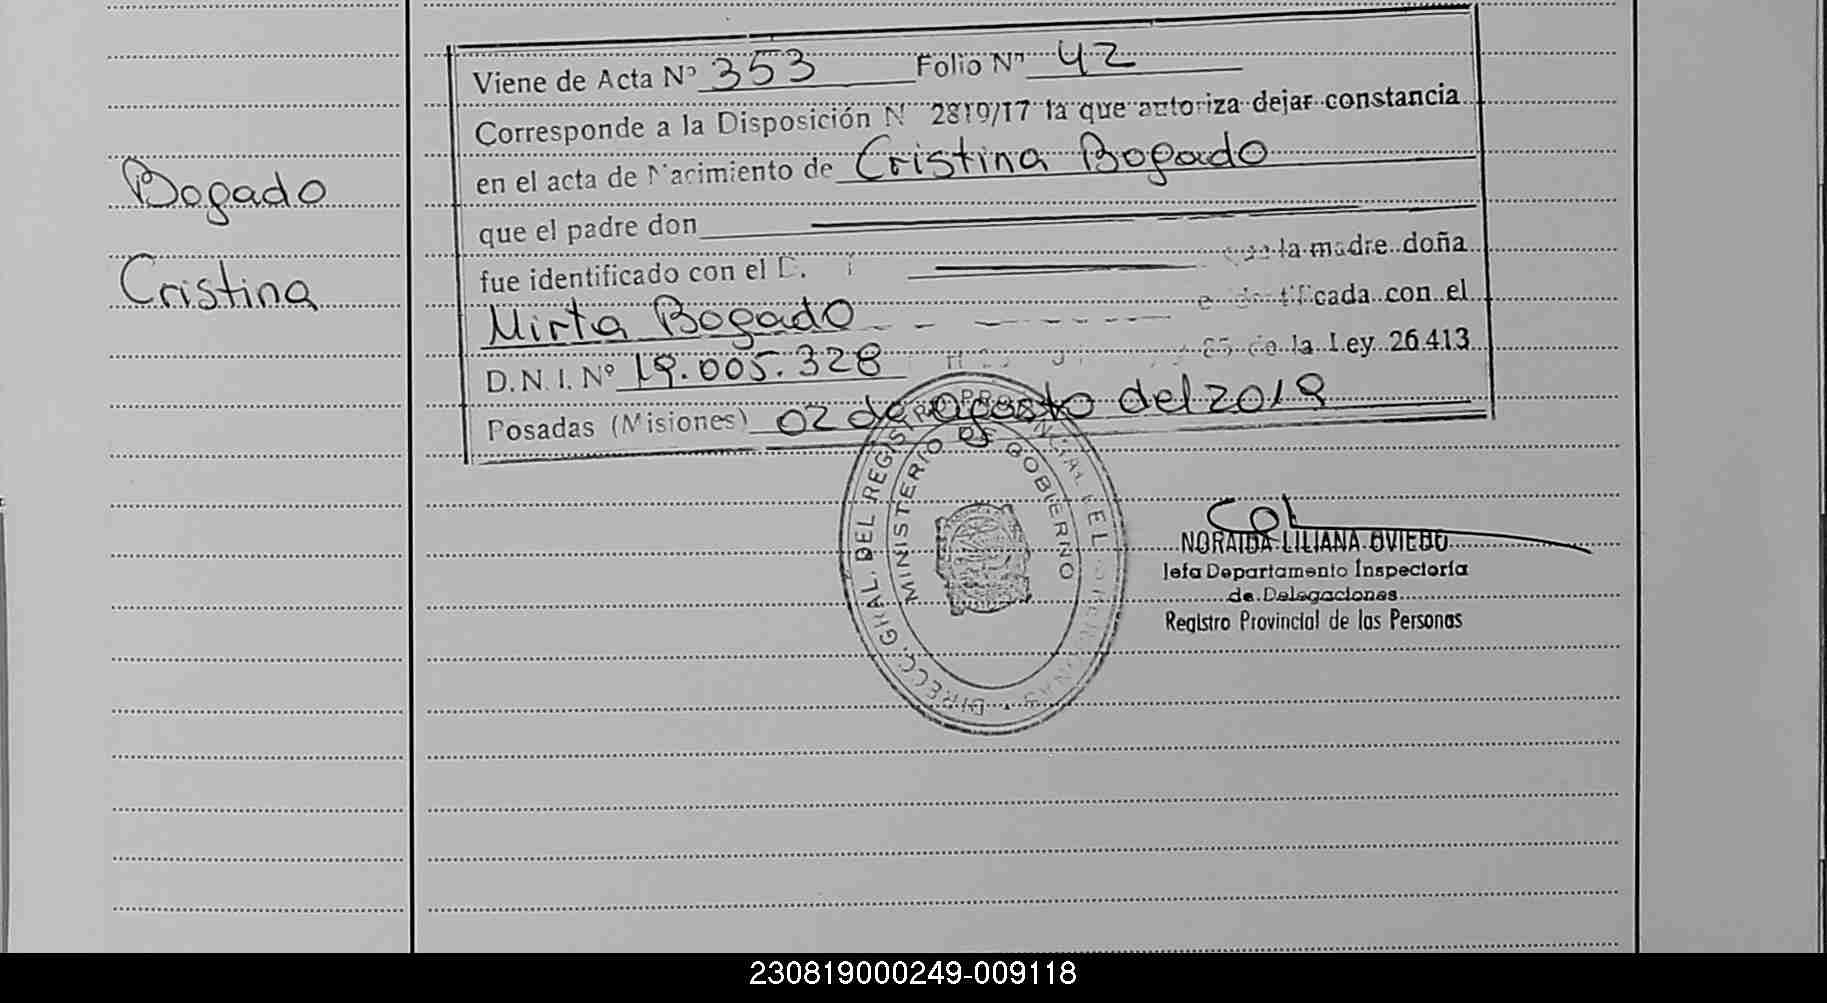 Bogado
Cristina
Viene de Acta Nº 353 Folio Nº 42
Corresponde a la Disposición N 2819/17 la que autoriza dejar constancia
en el acta de Nacimiento de Cristina Bogado
que el padre don
fue identificado con el D. la madre doña
Mirta Bogado cada con el
D.N.I. Nº 19.005.328 de la Ley 26.413
Posadas (Misiones) 02 de agosto del 2019
DIRECC. GRAL. DEL REGISTRO PROVINCIAL DE LAS PERSONAS
MINISTERIO DE GOBIERNO
NORAIDA LILIANA OVIEDO
Jefa Departamento Inspectoría
de Delegaciones
Registro Provincial de las Personas
230819000249-009118